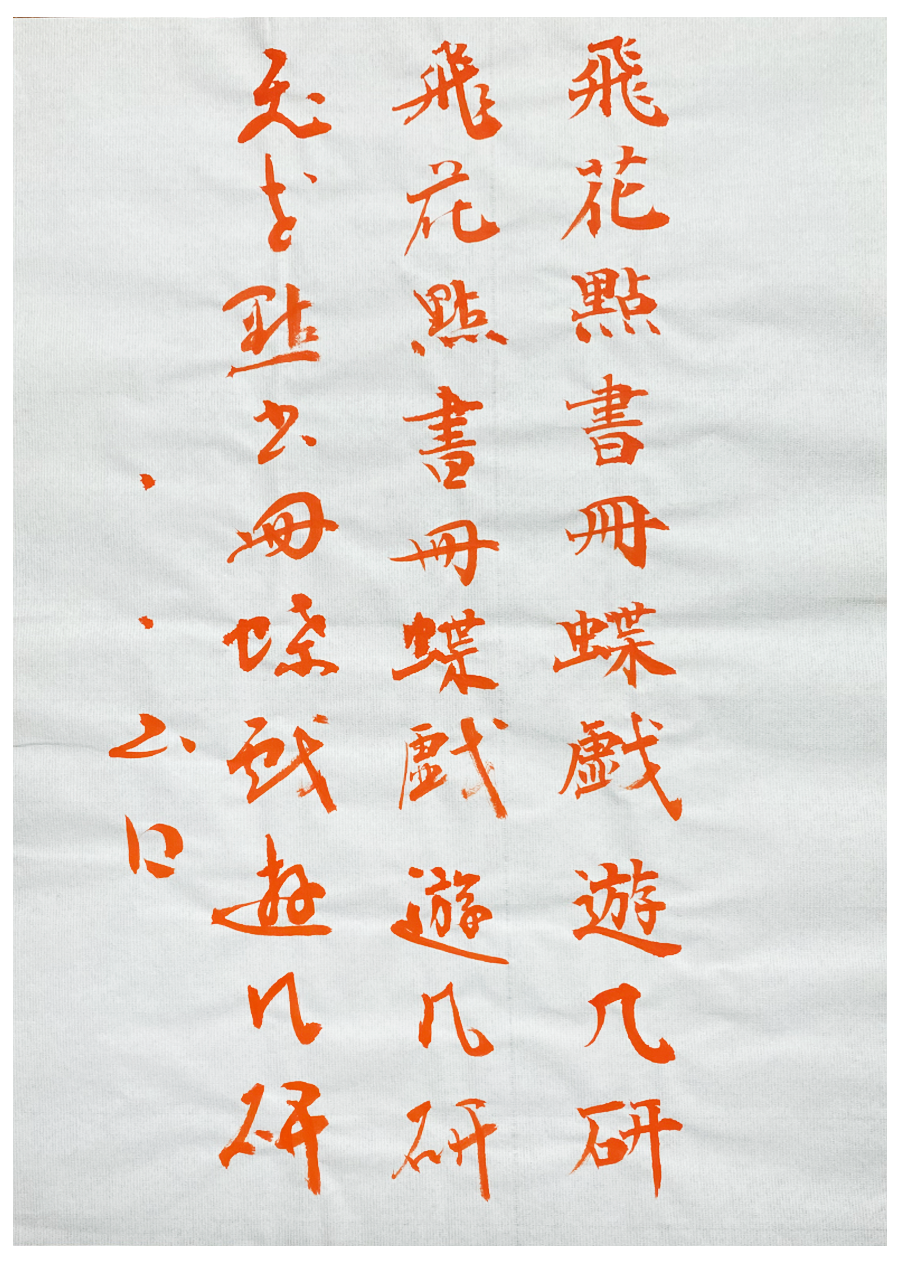 飛花點書冊蝶戯遊几研
飛花點書冊蝶戯遊几研
飛花點書冊蝶戯遊几研